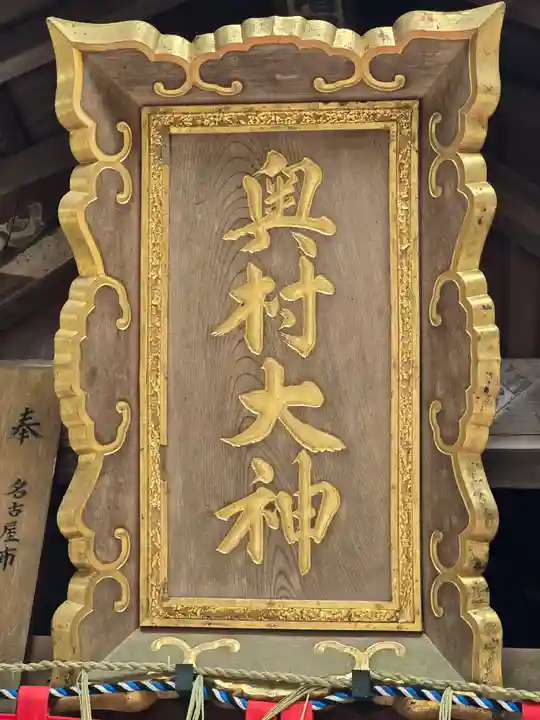 奥村大神
奉
名古屋市